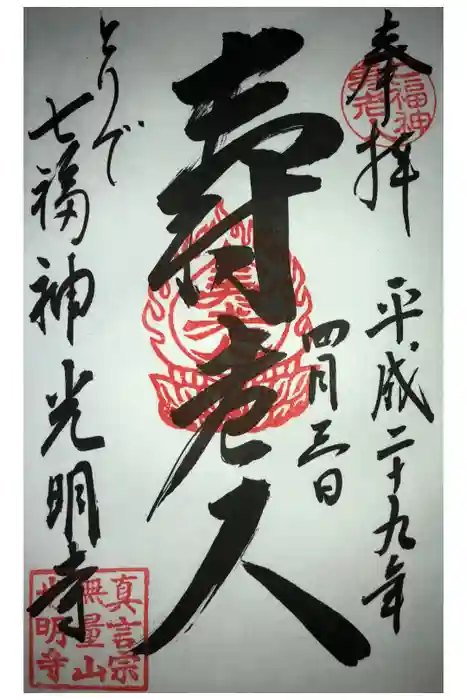 奉拝
七福神
寿老人
平成二十九年
四月三日
寿老人
とりで
七福神光明寺
真言宗
無量山
光明寺